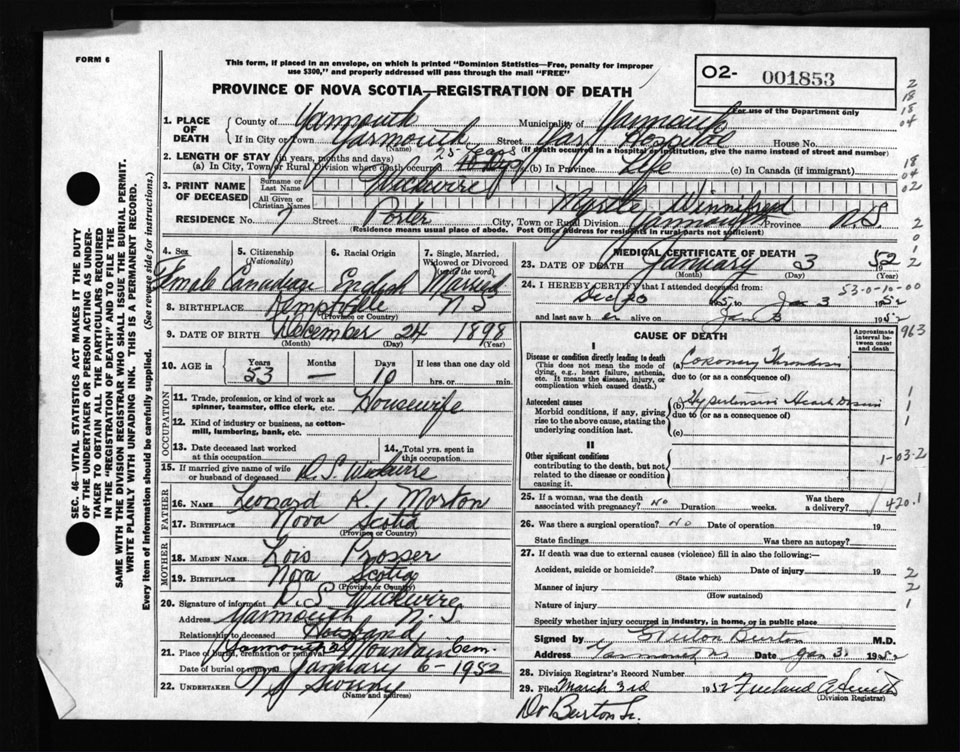 FORM 6
This form, if placed in an envelope, on which is printed "Dominion Statistics—Free, penalty for improper
use $300," and properly addressed will pass through the mail "FREE"
PROVINCE OF NOVA SCOTIA—REGISTRATION OF DEATH
O2- 001853
For use of the Department only
SEC. 46—VITAL STATISTICS ACT MAKES IT THE DUTY
OF THE UNDERTAKER OR PERSON ACTING AS UNDER-
TAKER TO OBTAIN ALL THE PARTICULARS REQUIRED
IN THE "REGISTRATION OF DEATH" AND TO FILE THE
SAME WITH THE DIVISION REGISTRAR WHO SHALL ISSUE THE BURIAL PERMIT.
WRITE PLAINLY WITH UNFADING INK. THIS IS A PERMANENT RECORD.
Every item of information should be carefully supplied. (See reverse side for instructions.)
1. PLACE OF DEATH County of Yarmouth Municipality of Yarmouth
If in City or Town Yarmouth (Name) Street Yar. Hospital House No.
(If death occurred in a hospital or institution, give the name instead of street and number)
2. LENGTH OF STAY (in years, months and days) 25 Years
(a) In City, Town or Rural Division where death occurred (b) In Province Life (c) In Canada (if immigrant)
3. PRINT NAME OF DECEASED Surname or Last Name Wickwire
All Given or Christian Names Myrtle Winnifred
RESIDENCE No. 7 Street Porter City, Town or Rural Division Yarmouth Province N.S.
(Residence means usual place of abode. Post Office address for residents in rural parts not sufficient)
4. Sex Female
5. Citizenship (Nationality) Canadian
6. Racial Origin English
7. Single, Married, Widowed or Divorced (write the word) Married
8. BIRTHPLACE Kemptville N S
(Province or Country)
9. DATE OF BIRTH December 24 1898
(Month) (Day) (Year)
10. AGE in Years 53 Months — Days 10 If less than one day old
hrs. or min.
OCCUPATION
11. Trade, profession, or kind of work as spinner, teamster, office clerk, etc. Housewife
12. Kind of industry or business, as cotton-mill, lumbering, bank, etc.
13. Date deceased last worked at this occupation 14. Total yrs. spent in this occupation
15. If married give name of wife or husband of deceased R. S. Wickwire
FATHER
16. NAME Leonard K. Morton
17. BIRTHPLACE Nova Scotia
MOTHER
18. MAIDEN NAME Lois Prosser
19. BIRTHPLACE Nova Scotia
(Province or Country)
20. Signature of informant R. S. Wickwire
Address Yarmouth N. S.
Relationship to deceased Husband
21. Place of burial, cremation or removal Yarmouth Mountain Cem.
Date of burial or removal January 6- 1952
22. UNDERTAKER Sweeny
(Name and address)
MEDICAL CERTIFICATE OF DEATH
23. DATE OF DEATH January 3 1952
(Month) (Day)
24. I HEREBY CERTIFY that I attended deceased from: 53-0-10-00
Dec 20 to Jan 3 1952
and last saw her alive on Jan 3 1952
CAUSE OF DEATH
Approximate interval between onset and death
I
Disease or condition directly leading to death
(This does not mean the mode of dying, e.g., heart failure, asthenia, etc. It means the disease, injury, or complication which caused death.)
(a) Coronary Thrombosis
due to (or as a consequence of)
Antecedent causes
Morbid conditions, if any, giving rise to the above cause, stating the underlying condition last.
(b) Hypertensive Heart Disease
due to (or as a consequence of)
(c)
II
Other significant conditions
contributing to the death, but not related to the disease or condition causing it.
25. If a woman, was the death associated with pregnancy? No Duration weeks. Was there a delivery?
26. Was there a surgical operation? No Date of operation 19
State findings Was there an autopsy?
27. If death was due to external causes (violence) fill in also the following:—
Accident, suicide or homicide? Date of injury 19
(State which)
Manner of injury
(How sustained)
Nature of injury
Specify whether injury occurred in industry, in home, or in public place
Signed by Burton M.D.
Address Yarmouth NS Date Jan 3 1952
28. Division Registrar's Record Number
29. Filed March 3rd 1952
(Division Registrar)
Dr Burton
2
18
18
04
18
04
02
2
0
1
2
2
963
1
1
1
1-03-2
420.1
2
2
1